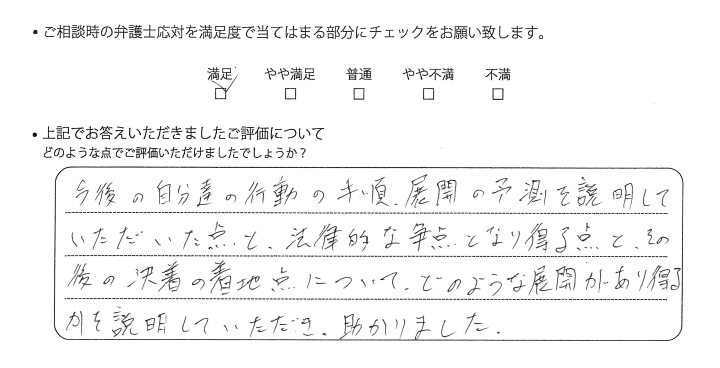 ・ご相談時の弁護士応対を満足度で当てはまる部分にチェックをお願い致します。
満足 やや満足 普通 やや不満 不満
・上記でお答えいただきましたご評価について
どのような点でご評価いただけましたでしょうか？
今後の自分達の行動の手順、展開の予測を説明して
いただいた点と、法律的な争点となり得る点と、その
後の決着の着地点について、どのような展開があり得る
かを説明していただき、助かりました。